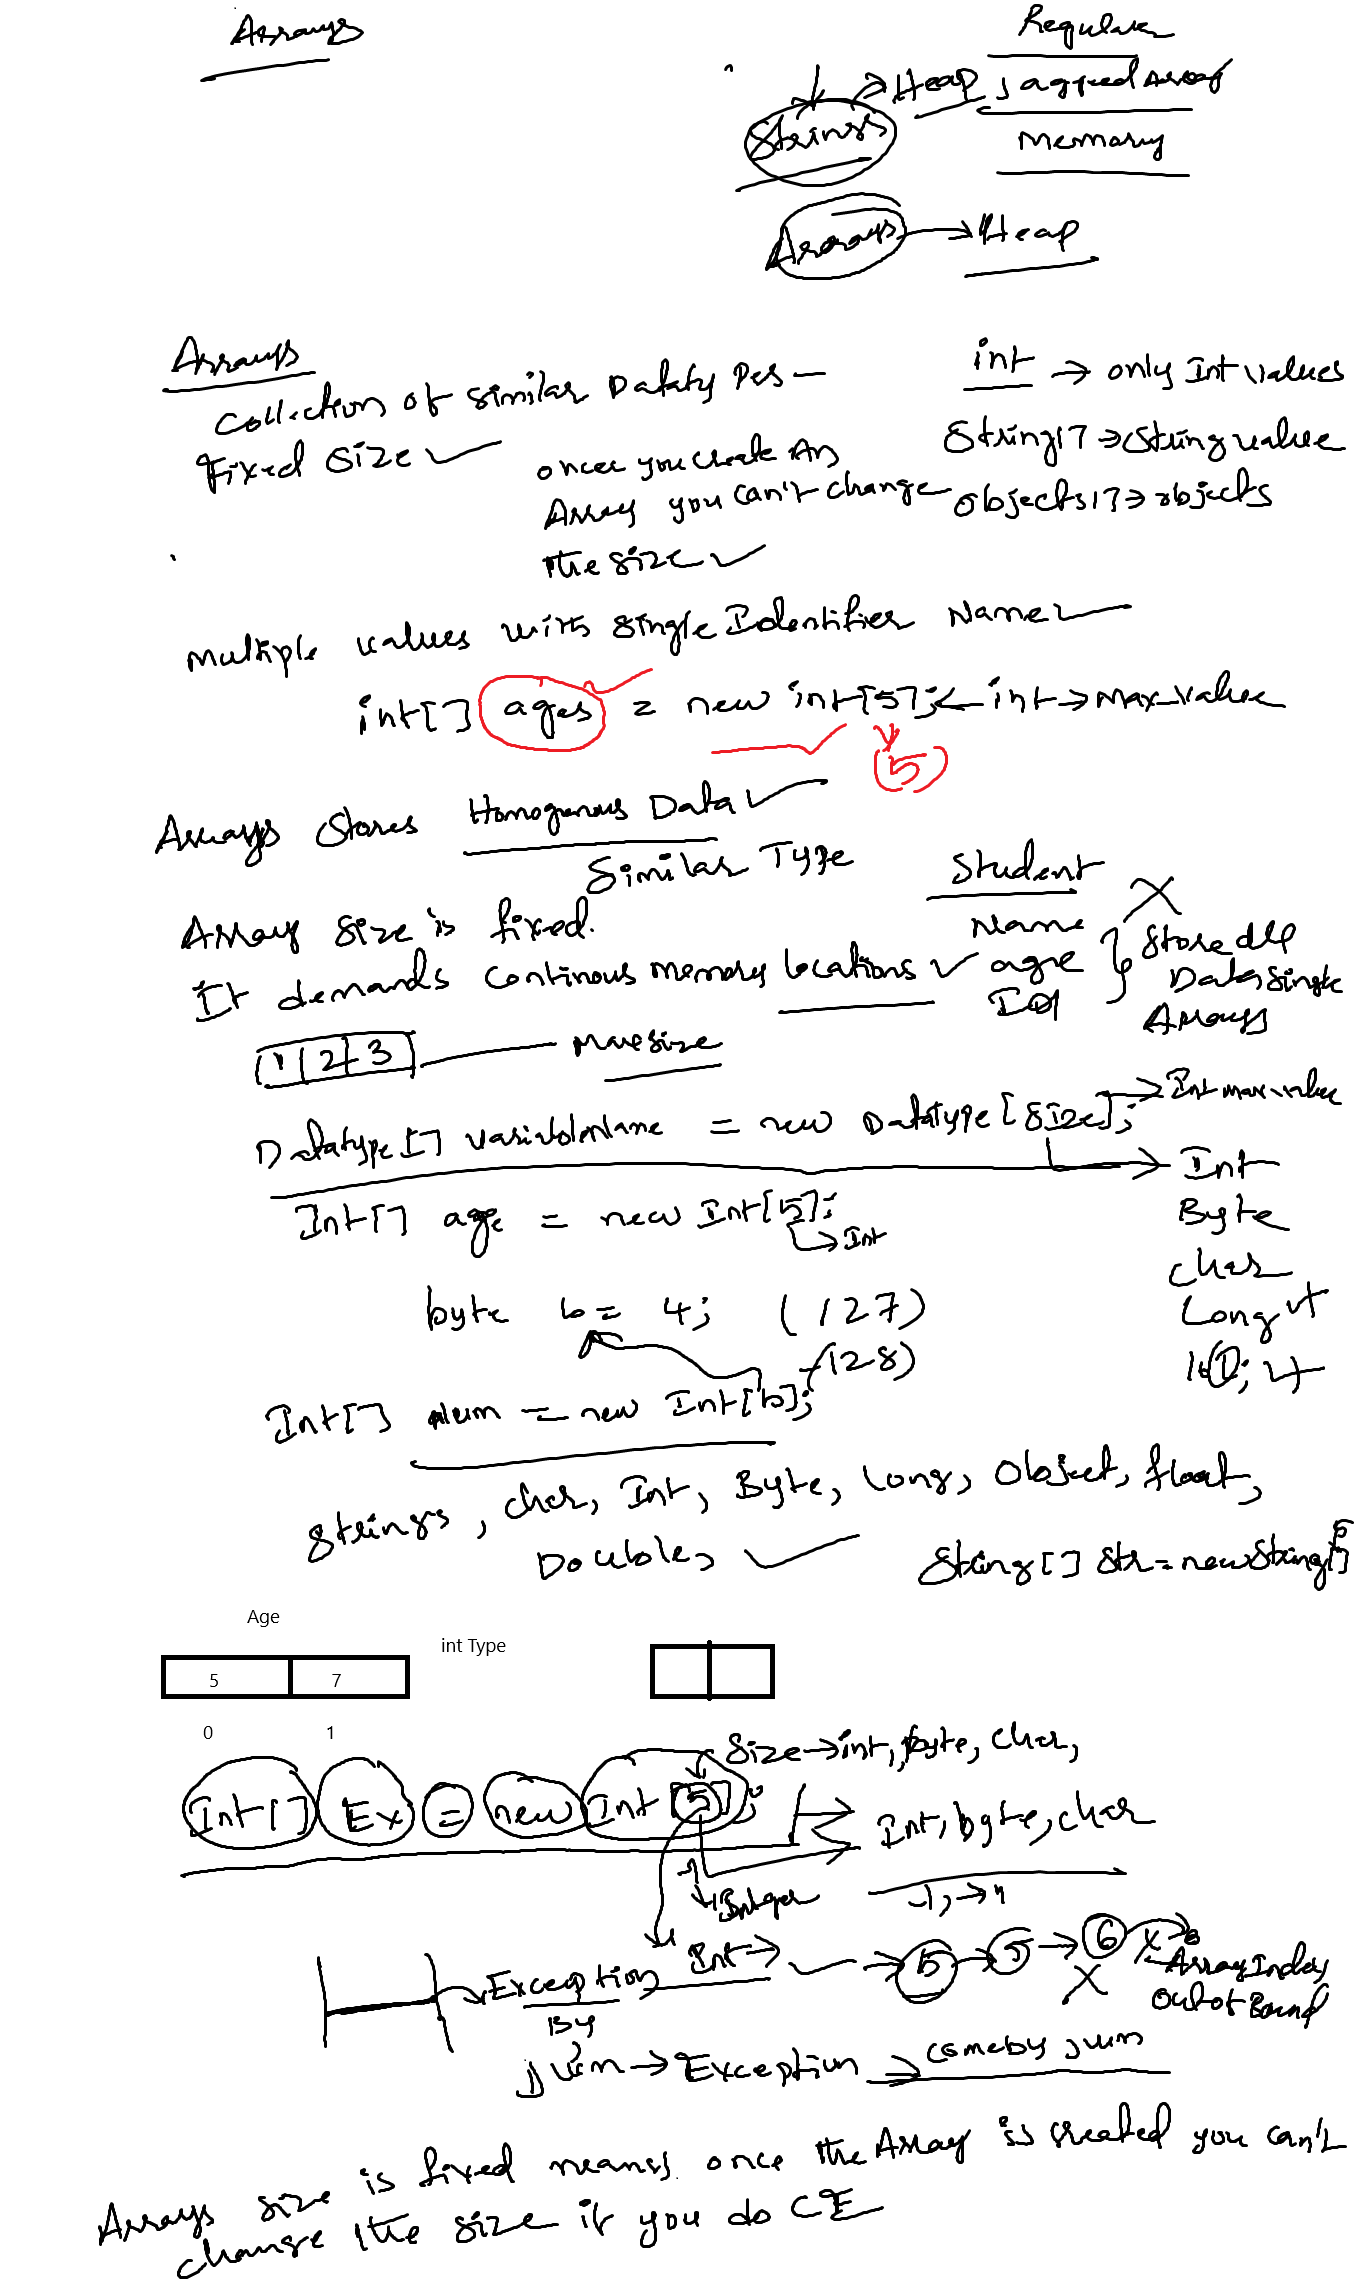 Arrays
Regular
Jagged Array
Heap
Strings
Memory
Arrays → Heap
Arrays
Collection of similar Datatypes
Fixed size
once you create An
Array you can't change
the size
int → only Int values
String[] → String value
Objects[] → objects
Multiple values with single Identifier Name
int[] ages = new int[5]; ← int → Max_value
(5)
Arrays Stores Homogenous Data
Similar Type
Student
Name
age
ID
X
Store all
Data single
Arrays
Array size is fixed.
It demands continous memory locations
1 2 3
Max size
Datatype[] variableName = new Datatype[size];
→ Int max-value
Int
Byte
char
Long
Int[] age = new Int[5];
→ Int
byte b = 4; (127)
-(128)
Int[] num = new Int[b];
Strings, char, Int, Byte, Long, Object, float,
Double,
String[] str = new String[5]
Age
int Type
5 7
0 1
Size → int, byte, char,
Int[] Ex = new Int[5];
Int, byte, char
Integer
Int → 5 → 5 → 6 X
Array Index
Out of Bound
Exception
By
jvm → Exception → come by jvm
Arrays size is fixed means. once the Array is created you can't
change the size if you do CE